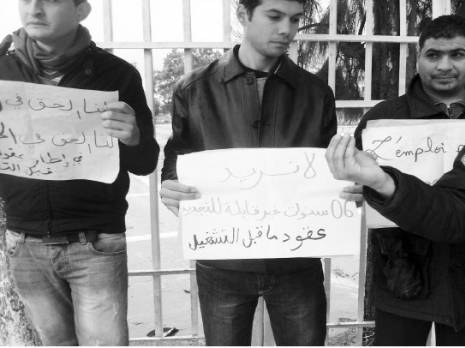 لنا الحق في
لنا الحق في
في إطار عقود
قبل
لا نريد
06 سنوات غير قابلة للتجديد
عقود ما قبل التشغيل
L'emploi